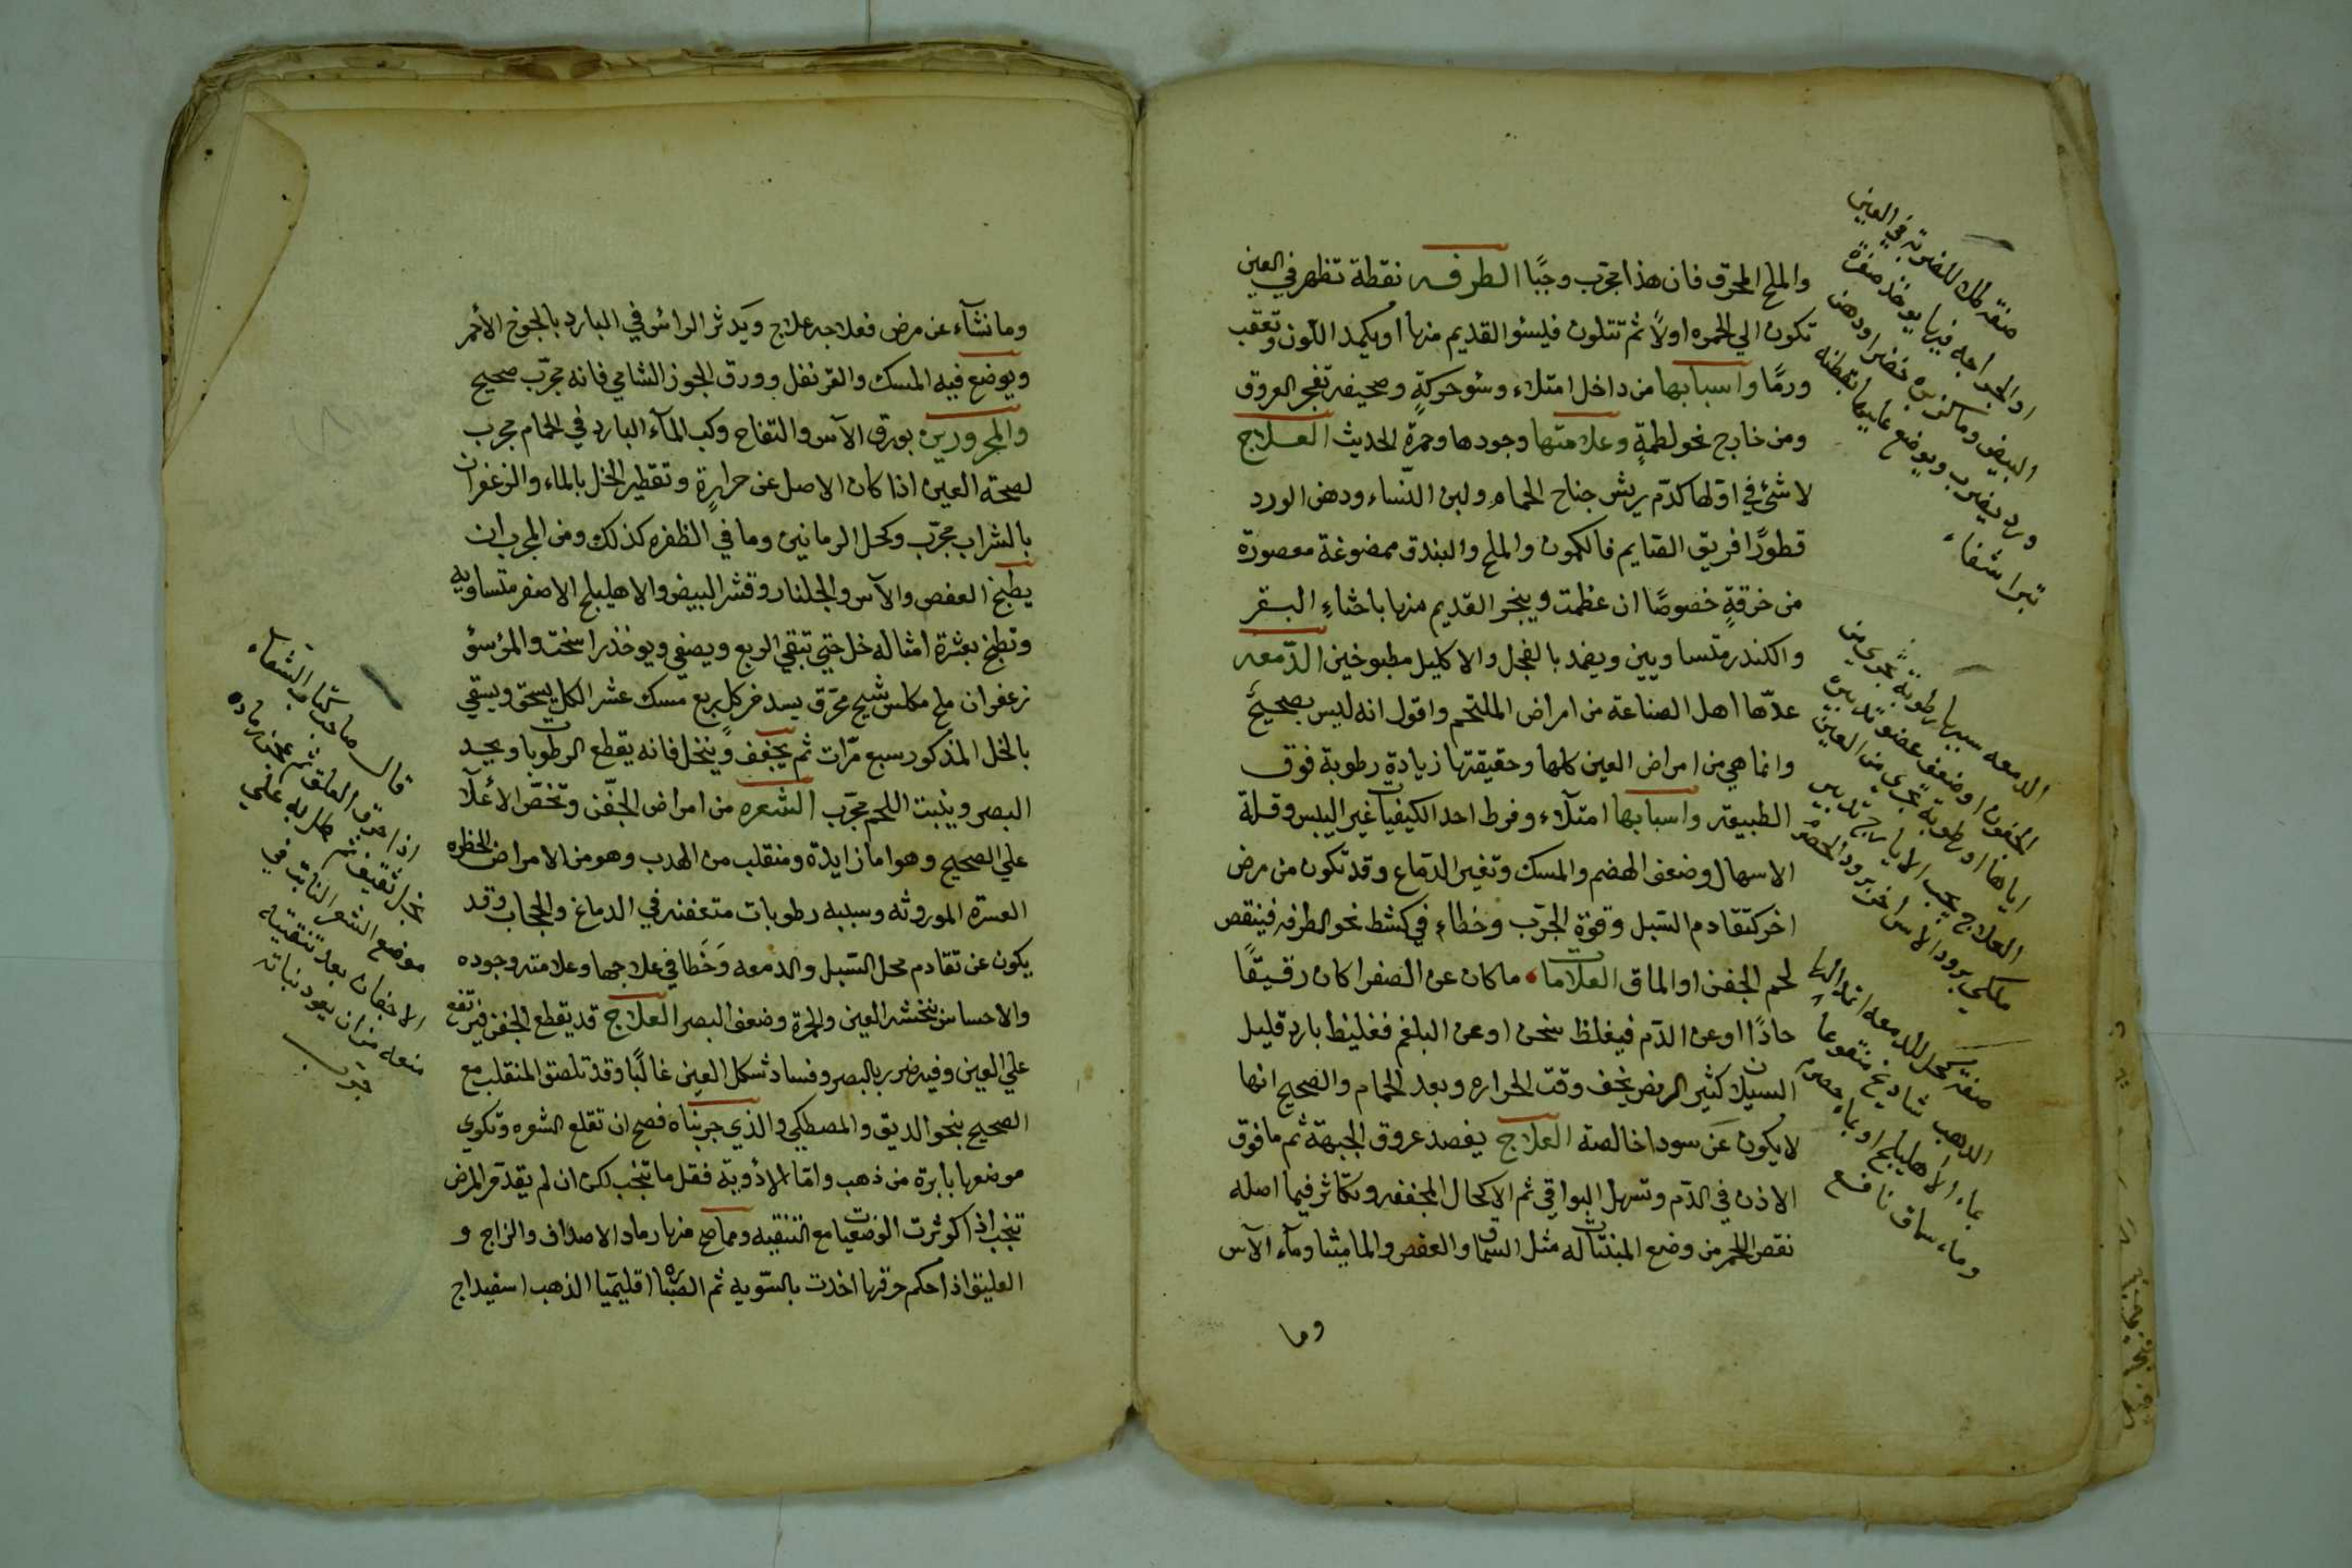 والملح المحرق فان هذا مجرب وجبًا الطرفه نقطة تظهر في العين
تكون الي الحمره اولًا ثم تتلون فليسؤ القديم منها او يكمد اللون وتعقب
ورمًا واسبابها من داخل امتلاء وسؤ حركةٍ وصحيفه تفجر العروق
ومن خارج نحو لطمةٍ وعلامتها وجودها وحمرة الحديث العلاج
لا شئ في اولها كدم ريش جناح الحمام ولبن النساء ودهن الورد
قطورًا فريق الصايم فالكمون والملح والبندق ممضوغة معصورة
من خرقةٍ خصوصًا ان عظمت ويبخر القديم منها باخثاءِ البقر
والكندر متساويين ويضمد بالفجل والاكليل مطبوخين الدمعه
عدّها اهل الصناعة من امراض الملتحم واقول انه ليس بصحيح
وانما هي من امراض العين كلها وحقيقتها زيادة رطوبة فوق
الطبيعة واسبابها امتلاء وفرط احد الكيفيات غير اليبس وقلة
الاسهال وضعف الهضم والمسك وتغير الدماغ وقد تكون من مرض
اخر كتقادم السبل وقوة الجرب وخطاء في كشط نحو الطرفه فينقص
لحم الجفن او الماق العلامات ما كان عن الصفرا كان رقيقًا
حادًا او عن الدم فيغلظ سخن او عن البلغم فغليظ بارد قليل
السيلان كثير الرمص يخف وقت الحراره وبعد الحمام والصحيح انها
لا يكون عن سودا خالصة العلاج يفصد عروق الجبهة ثم ما فوق
الاذن في الدم وتسهل البواقي ثم الاكحال المجففه وتكاثر فيما اصله
نقص اللحم من وضع المنبتات له مثل السماق والعفص والماميثا ومآء الآس
وما
صفة كحل للضربة في العين
او الجراحه فيها يوخذ صفرة
البيض وماء كزبره خضرا ودهن
ورد يضرب ويوضع عليها بقطنه
تبرا شفاء
الدمعه سببها رطوبة تجري من
الجفون او ضعف عضو تدبير
اياها او رطوبة تجري من العين
العلاج يجب الايارج تدبير
ملكي برود الآس اخر برود الحصرم
صفة كحل للدمعه
الدهب شاديخ منقوعا
بماء الاهليلج او بماء حصرم
وماء سماق نافع
وما نشآء عن مرض فعلاجه علاج ويدثر الراس في البارد بالجوخ الأحمر
ويوضع فيه المسك والقرنفل وورق الجوز الشامي فانه مجرّب صحيح
والمحرورين بورق الآس والتفاح وكب المآء البارد في الحمام مجرب
لصحة العين اذا كان الاصل عن حرارةٍ وتقطير الخل بالماء والزعفران
بالشراب مجرّب وكحل الرمانين وما في الظفره كذلك ومن المجرب ان
يطبخ العفص والآس والجلنار وقشر البيض والاهليلج الاصفر متساويه
وتطبخ بعشرة امثاله خل حتي تبقي الربع ويصفي ويوخذ راسخت والمؤسؤ
زعفران ملح مكلس شيح محرق يسد فركل ربع مسك عشر الكل يسحق ويسقي
بالخل المذكور سبع مرّات ثم يجفف وينخل فانه يقطع الرطوبات ويحد
البصر وينبت اللحم مجرّب الشعره من امراض الجفن وتخصّ الأعلآ
علي الصحيح وهو اما زايدة ومنقلب من الهدب وهو من الامراض الخطره
العسرة الموروثه وسببه رطوبات متعفنه في الدماغ والحجاب وقد
يكون عن تقادم محل السبل والدمعه وخطا في علاجها وعلامته وجوده
والاحساس بنخشه العين والحمرة وضعف البصر العلاج قد يقطع الجفن فيرتفع
علي العين وفيه ضرر بالبصر وفساد شكل العين غالبًا وقد تلصق المنقلب مع
الصحيح بنحو الدبق والمصطكي والذي جربناه فصح ان تقلع الشعره وتكوي
موضعها بابرة من ذهب واما الأدوية فقل ما تنجب لكن ان لم يقدم المرض
تنجب اذا كوثرت الوضعيات مع التنقيه ومما صح منها رماد الاصداف والزاج و
العليق اذا احكم حرقها اخدت بالسويه ثم الصبره اقليميا الذهب اسفيداج
قال صاحب كتاب الشفاء
اذا احرق العلق ثم عجن رماده
بخل ثقيف ثم طلي به علي
موضع الشعر النابت في
الاجفان بعد تنقيته
منعه من ان يعود نباته
مجرب